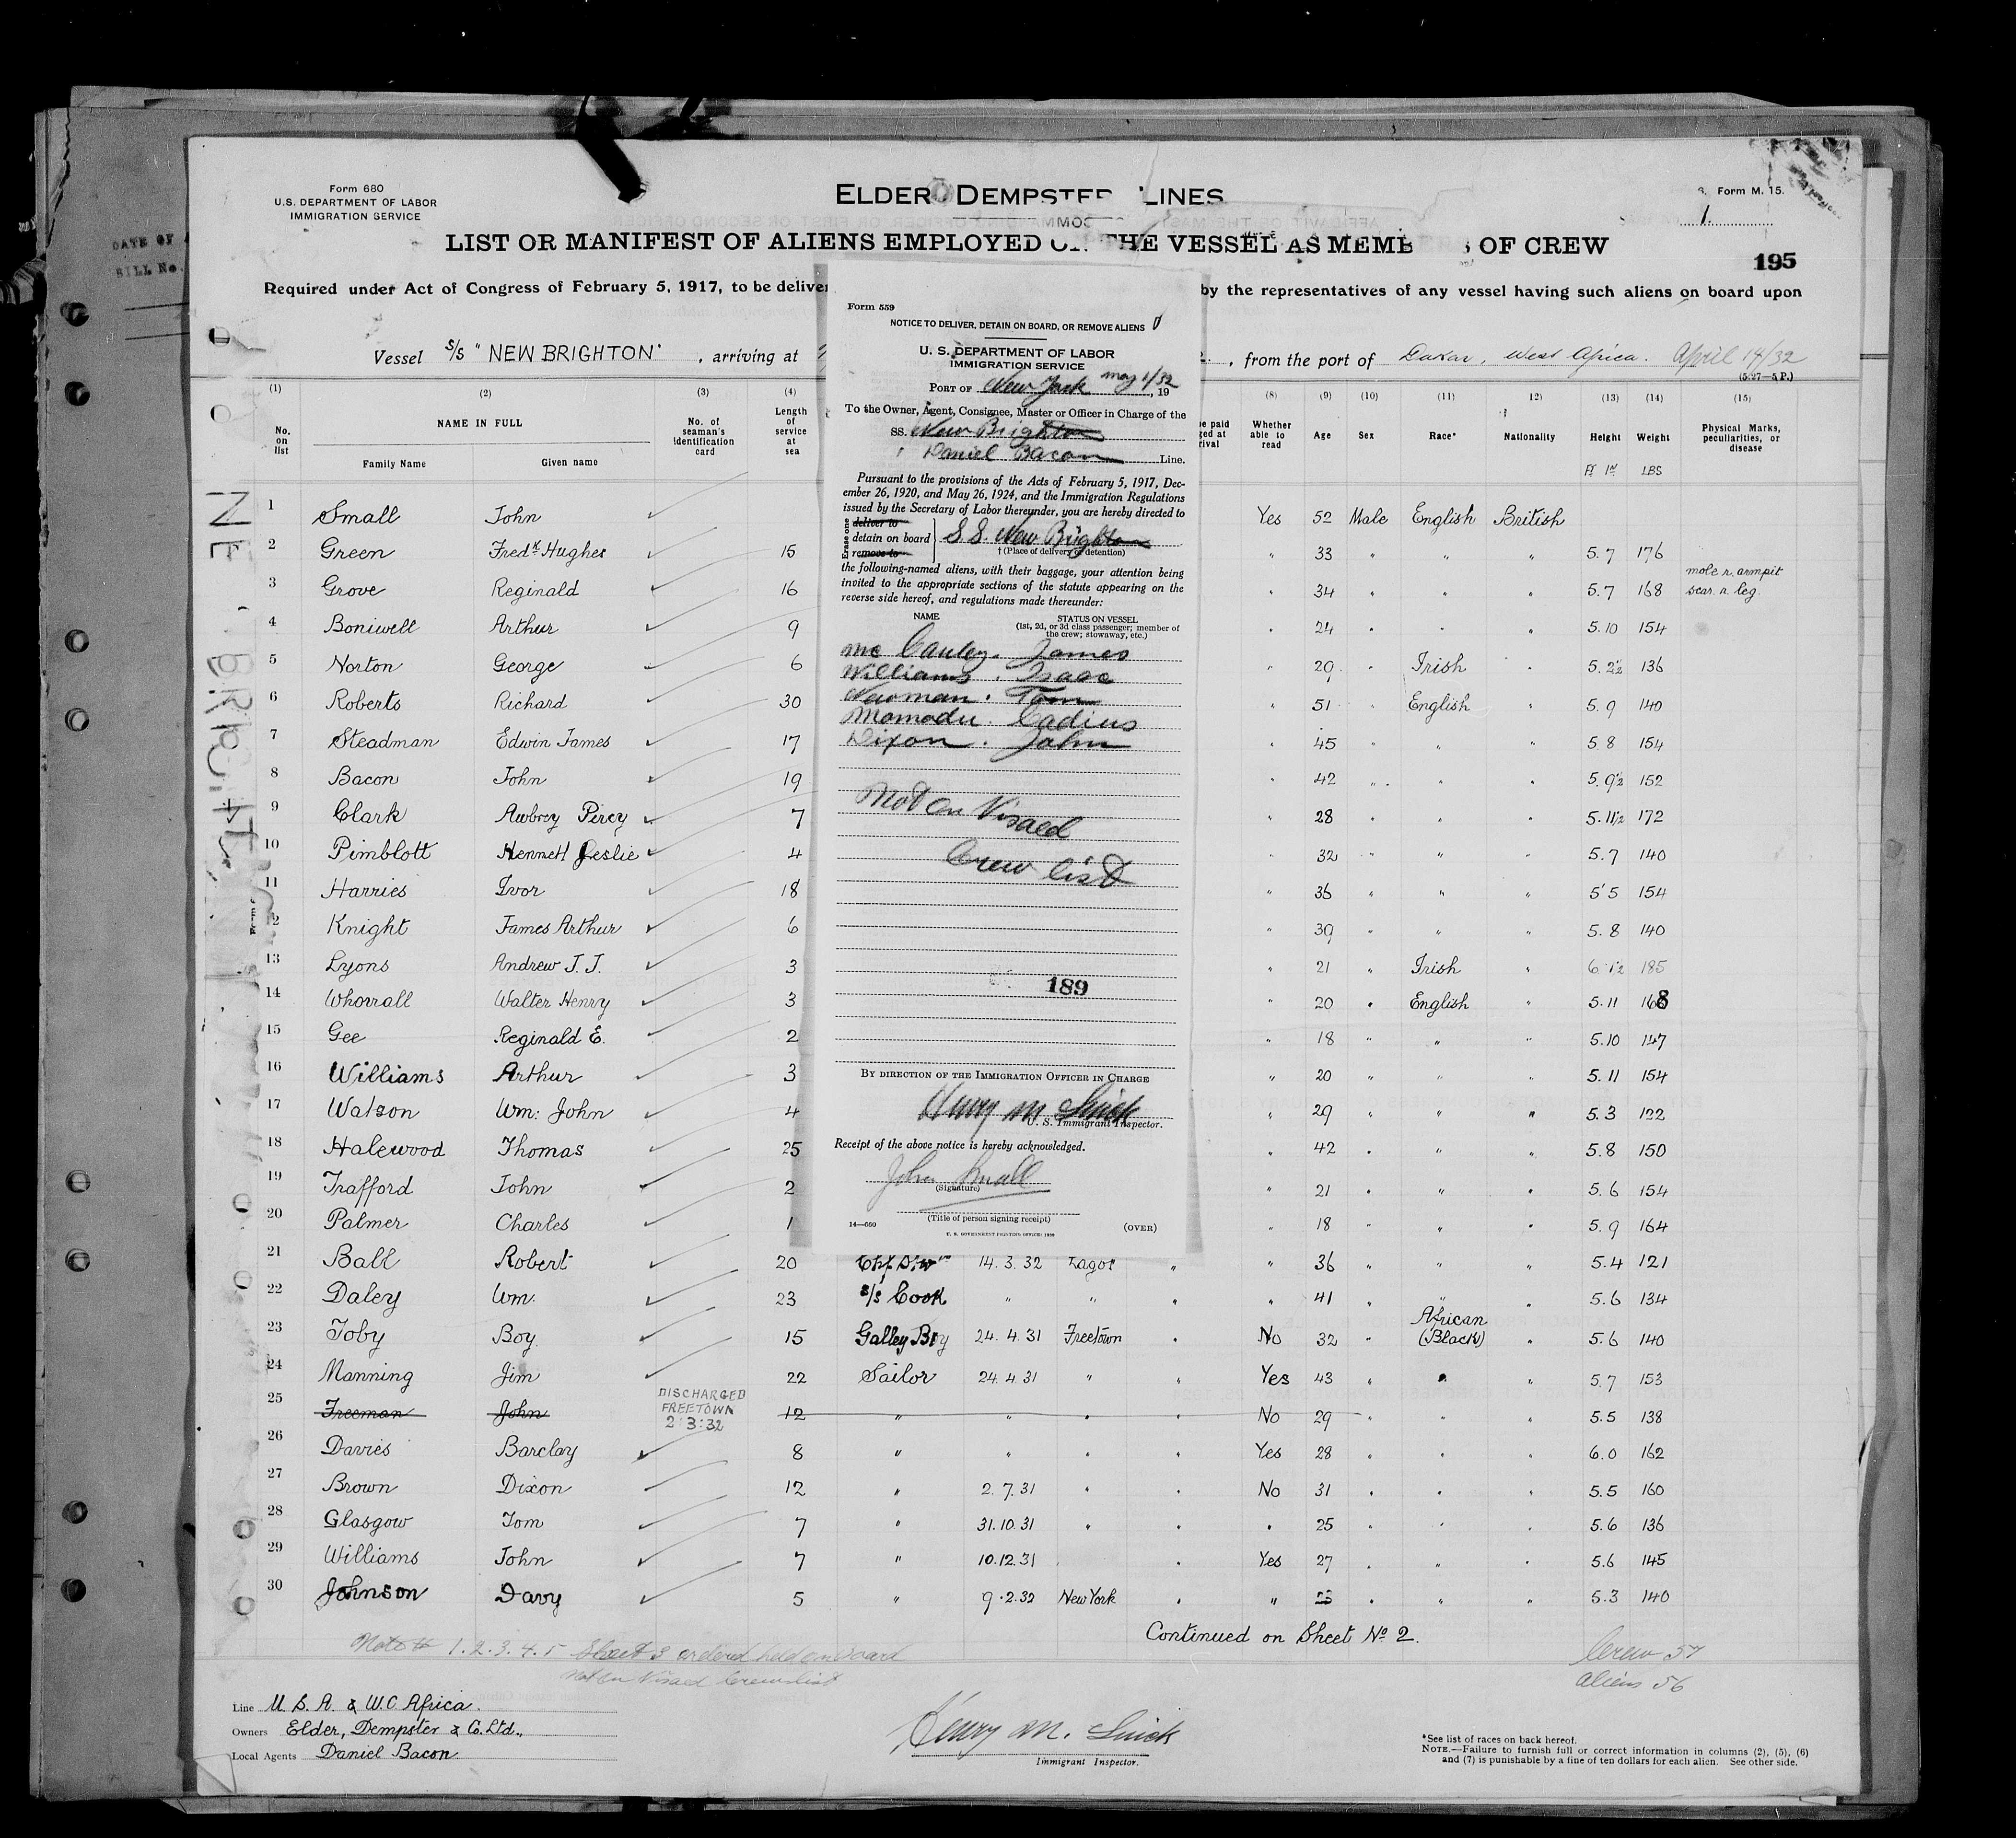 Form 680
U.S. DEPARTMENT OF LABOR
IMMIGRATION SERVICE
ELDER DEMPSTER LINES
Form M. 15.
1.
LIST OR MANIFEST OF ALIENS EMPLOYED ON THE VESSEL AS MEMB OF CREW
195
Required under Act of Congress of February 5, 1917, to be deliver by the representatives of any vessel having such aliens on board upon
Vessel S/S "NEW BRIGHTON" , arriving at , from the port of Dakar, West Africa. April 14/32
(5-27—5 P.)
(1) (2) (3) (4) (8) (9) (10) (11) 12) (13) (14) (15)
No. on list NAME IN FULL No. of seaman's identification card Length of service at sea Whether able to read Age Sex Race* Nationality Height Weight Physical Marks, peculiarities, or disease
Family Name Given name Ft In LBS
1 Small John Yes 52 Male English British
2 Green Fredk Hughes 15 " 33 " " " 5.7 176
3 Grove Reginald 16 " 34 " " " 5.7 168 mole r. armpit scar r. leg.
4 Boniwell Arthur 9 " 24 " " " 5.10 154
5 Norton George 6 " 29 " Irish " 5.2½ 136
6 Roberts Richard 30 " 51 " English " 5.9 140
7 Steadman Edwin James 17 " 45 " " " 5.8 154
8 Bacon John 19 " 42 " " " 5.9½ 152
9 Clark Awbrey Percy 7 " 28 " " " 5.11½ 172
10 Pimblott Kennett Leslie 4 " 32 " " " 5.7 140
11 Harries Ivor 18 " 36 " " " 5'5 154
12 Knight James Arthur 6 " 39 " " " 5.8 140
13 Lyons Andrew J. J. 3 " 21 " Irish " 6 1½ 185
14 Whorrall Walter Henry 3 " 20 " English " 5.11 168
15 Gee Reginald E. 2 " 18 " " " 5.10 147
16 Williams Arthur 3 " 20 " " " 5.11 154
17 Watson Wm: John 4 " 29 " " " 5.3 122
18 Halewood Thomas 25 " 42 " " " 5.8 150
19 Trafford John 2 " 21 " " " 5.6 154
20 Palmer Charles 1 " 18 " " " 5.9 164
21 Ball Robert 20 14.3.32 Lagos " " 36 " " " 5.4 121
22 Daley Wm. 23 s/s Cook " " " " 41 " " " 5.6 134
23 Toby Boy. 15 Galley Boy 24.4.31 Freetown " No 32 " African (Black) " 5.6 140
24 Manning Jim 22 Sailor 24.4.31 " " Yes 43 " " " 5.7 153
25 Freeman John DISCHARGED FREETOWN 2:3:32 12 " " " " No 29 " " " 5.5 138
26 Davies Barclay 8 " " " " Yes 28 " " " 6.0 162
27 Brown Dixon 12 " 2.7.31 " " No 31 " " " 5.5 160
28 Glasgow Tom 7 " 31.10.31 " " " 25 " " " 5.6 136
29 Williams John 7 " 10.12.31 " Yes 27 " " " 5.6 145
30 Johnson Davy 5 " 9.2.32 New York " " 23 " " " 5.3 140
Continued on Sheet No 2.
1.2.3.4.5 Sheet 3 ordered held on board
Not on Visaed Crew list
Crew 57
Aliens 56
Line U.S.A. & W.C Africa.
Owners Elder, Dempster & Co. Ltd.,
Local Agents Daniel Bacon.
Henry M.
Immigrant Inspector.
*See list of races on back hereof.
NOTE.—Failure to furnish full or correct information in columns (2), (5), (6)
and (7) is punishable by a fine of ten dollars for each alien. See other side.
Form 559
NOTICE TO DELIVER, DETAIN ON BOARD, OR REMOVE ALIENS
U. S. DEPARTMENT OF LABOR
IMMIGRATION SERVICE
PORT OF New York May 1/32, 19
To the Owner, Agent, Consignee, Master or Officer in Charge of the
SS. New Brighton
Daniel Bacon Line.
Pursuant to the provisions of the Acts of February 5, 1917, Dec-
ember 26, 1920, and May 26, 1924, and the Immigration Regulations
issued by the Secretary of Labor thereunder, you are hereby directed to
Erase one
deliver to
detain on board S.S. New Brighton
remove to †(Place of delivery or detention)
the following-named aliens, with their baggage, your attention being
invited to the appropriate sections of the statute appearing on the
reverse side hereof, and regulations made thereunder:
NAME STATUS ON VESSEL
(1st, 2d, or 3d class passenger; member of
the crew; stowaway, etc.)
Mc Cauley. James
Williams. Isaac
Newman. Tom
Momodu. Cadius
Dixon. John
Not on Visaed
Crew list
189
BY DIRECTION OF THE IMMIGRATION OFFICER IN CHARGE
Henry M
U. S. Immigrant Inspector.
Receipt of the above notice is hereby acknowledged.
John Small
(Signature)
(Title of person signing receipt)
14—660 (OVER)
U. S. GOVERNMENT PRINTING OFFICE: 1930
DATE OF
BILL No.
NEW BRIGHTON